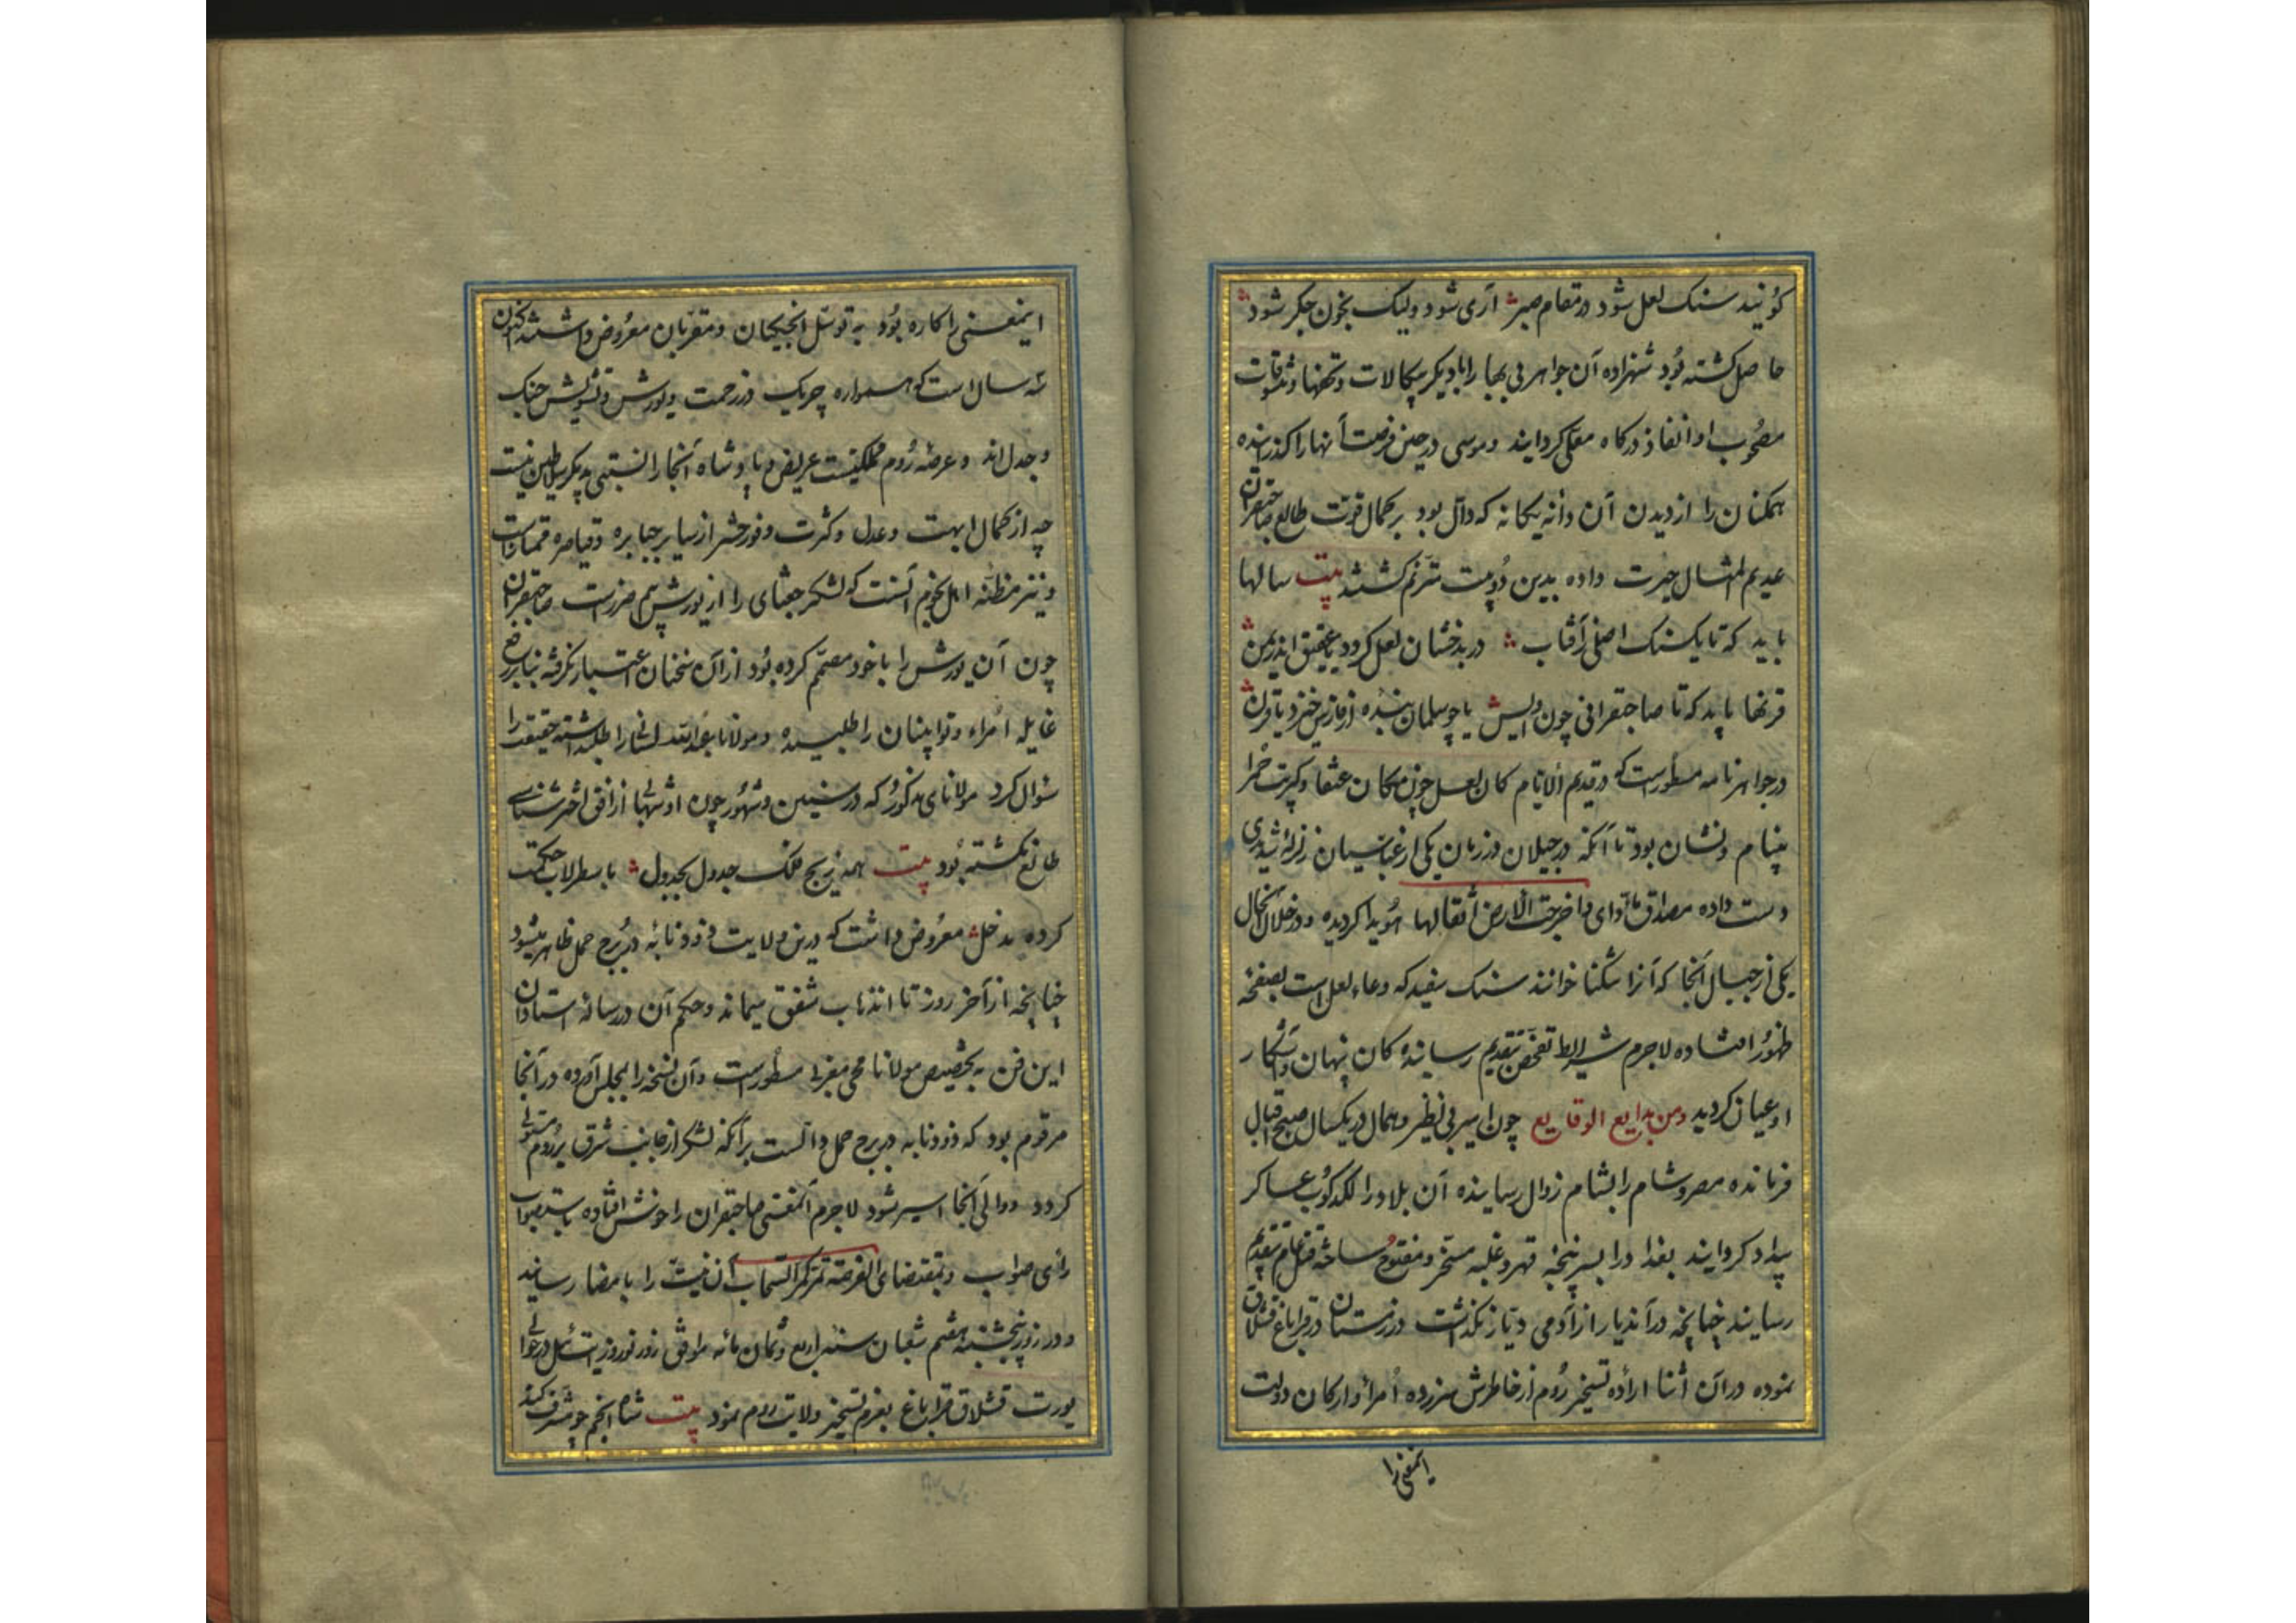 کویند سنک لعل شود در مقام صبر آری شود ولیک بخون جکر شود
حاصل کشته بود شهزاده آن جواهر بی بها را با دیکر پیکالات و تحفها و تنسوقات
مصحوب او انفاذ درکاه معلی کردایند و موسی در حین فرصت آنها را کذرانیده
همکنان را از دیدن آن دانه یکانه که دال بود بر کمال قوت طالع صاحبقران
عدیم المثال حیرت داده بدین دو بیت مترنم کشتند بیت سالها
باید که تا یکسنک اصلی ز آفتاب در بدخشان لعل کردد یا عقیق اندر یمن
قرنها باید که تا صاحبقرانی چون اویس یا چو سلمان بنده از فارس خیزد یا قرن
در جواهرنامه مسطورست که در قدیم الایام کان لعل چون مکان عنقا و کبریت حمرا
بینام و نشان بود تا آنکه در جیلان در زمان یکی از عباسیان زلزله شدیدی
دست داده مصداق مؤدای و اخرجت الارض اثقالها هویدا کردیده و در خلال آنحال
یکی از جبال آنجا که آنرا شکنا خوانند سنک سفید که وعاء لعل است بصفحه
ظهور افتاده لاجرم شرایط تفحص بتقدیم رسانیده کان پنهان و آشکار
او عیان کردید ومن بدایع الوقایع چون امیر بی نظیر و همال در یکسال صبح اقبال
فرمانده مصر و شام را بشام زوال رسانیده آن بلاد را لکدکوب عساکر
بیداد کردایند بغداد را بسرپنجه قهر و غلبه مسخر و مفتوح ساخته قتل عام بتقدیم
رسانید چنانچه در آندیار از آدمی دیار نکذاشت در زمستان در قراباغ قشلاق
نموده در آن اثنا اراده تسخیر روم از خاطرش سرزده امراء و ارکان دولت
اینمعنی را
اینمعنی را کاره بود به توسل انجیکان و مقربان معروض داشتند اکنون
سه سال است که همواره چریک در زحمت و یورش و تشویش جنک
و جدل اند و عرصه روم مملکتیست عریض و پادشاه آنجا را نسبتی به دیکر سلاطین نیست
چه از کمال ابهت و عدل و کثرت و وفور حشر از سایر جبابره و قیاصره ممتاز است
و نیز مظنه اهل نجوم آنست که لشکر جغتای را ازین یورش بیم ضررست صاحبقران
چون آن یورش را با خود مصمم کرده بود از آن سخنان اعتبار نکرفته بنا بر رفع
غایله امراء و نواینان را طلبیده و مولانا عبدالله لسانرا طلبداشته حقیقت را
سؤال کرد مولانای مذکور که در سنین و شهور چون او شهابی از افق اختر شناسی
طالع نکشته بود بیت همه زیج فلک جدول بجدول باسطرلاب حکمت
کرده بد حل معروض داشت که درین ولایت ذوذنابه در برج حمل ظاهر میشود
چنانچه از آخر روز تا انذهاب شفق میماند و حکم آن در رساله استادان
این فن به تخصیص مولانا محی مغربی مسطور است و آن نسخه را بمجلس آورده در آنجا
مرقوم بود که ذوذنابه در برج حمل دالست بر آنکه لشکر از جانب شرق بر روم مستولی
کردد و والی آنجا اسیر شود لاجرم آنمعنی صاحبقران را خوش افتاده باستصواب
رای صواب و بمقتضای الفرصة تمر کمر السحاب آن نیت را بامضا رسانید
و در روز پنجشنبه هفتم شعبان سنه اربع و ثمان مائه موافق روز نوروز ایت ئیل در حوالی
یورت قشلاق قراباغ بعزم تسخیر ولایت روم نمود بیت شاه انجم چو شرف کند